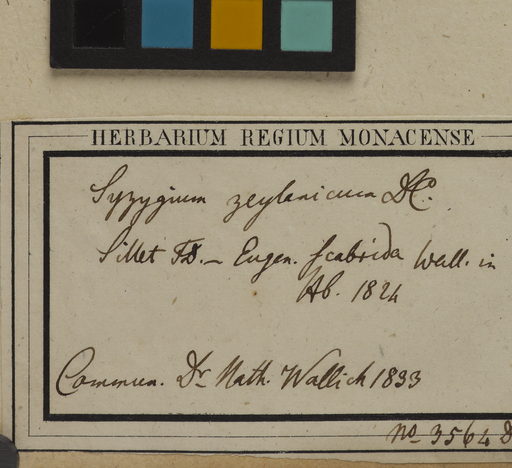 HERBARIUM REGIUM MONACENSE
Syzygium zeylanicum DC.
Sillet FD. – Eugen. scabrida Wall. in
Hb. 1824
Commun. Dr. Nath. Wallich 1833
no 3564 D